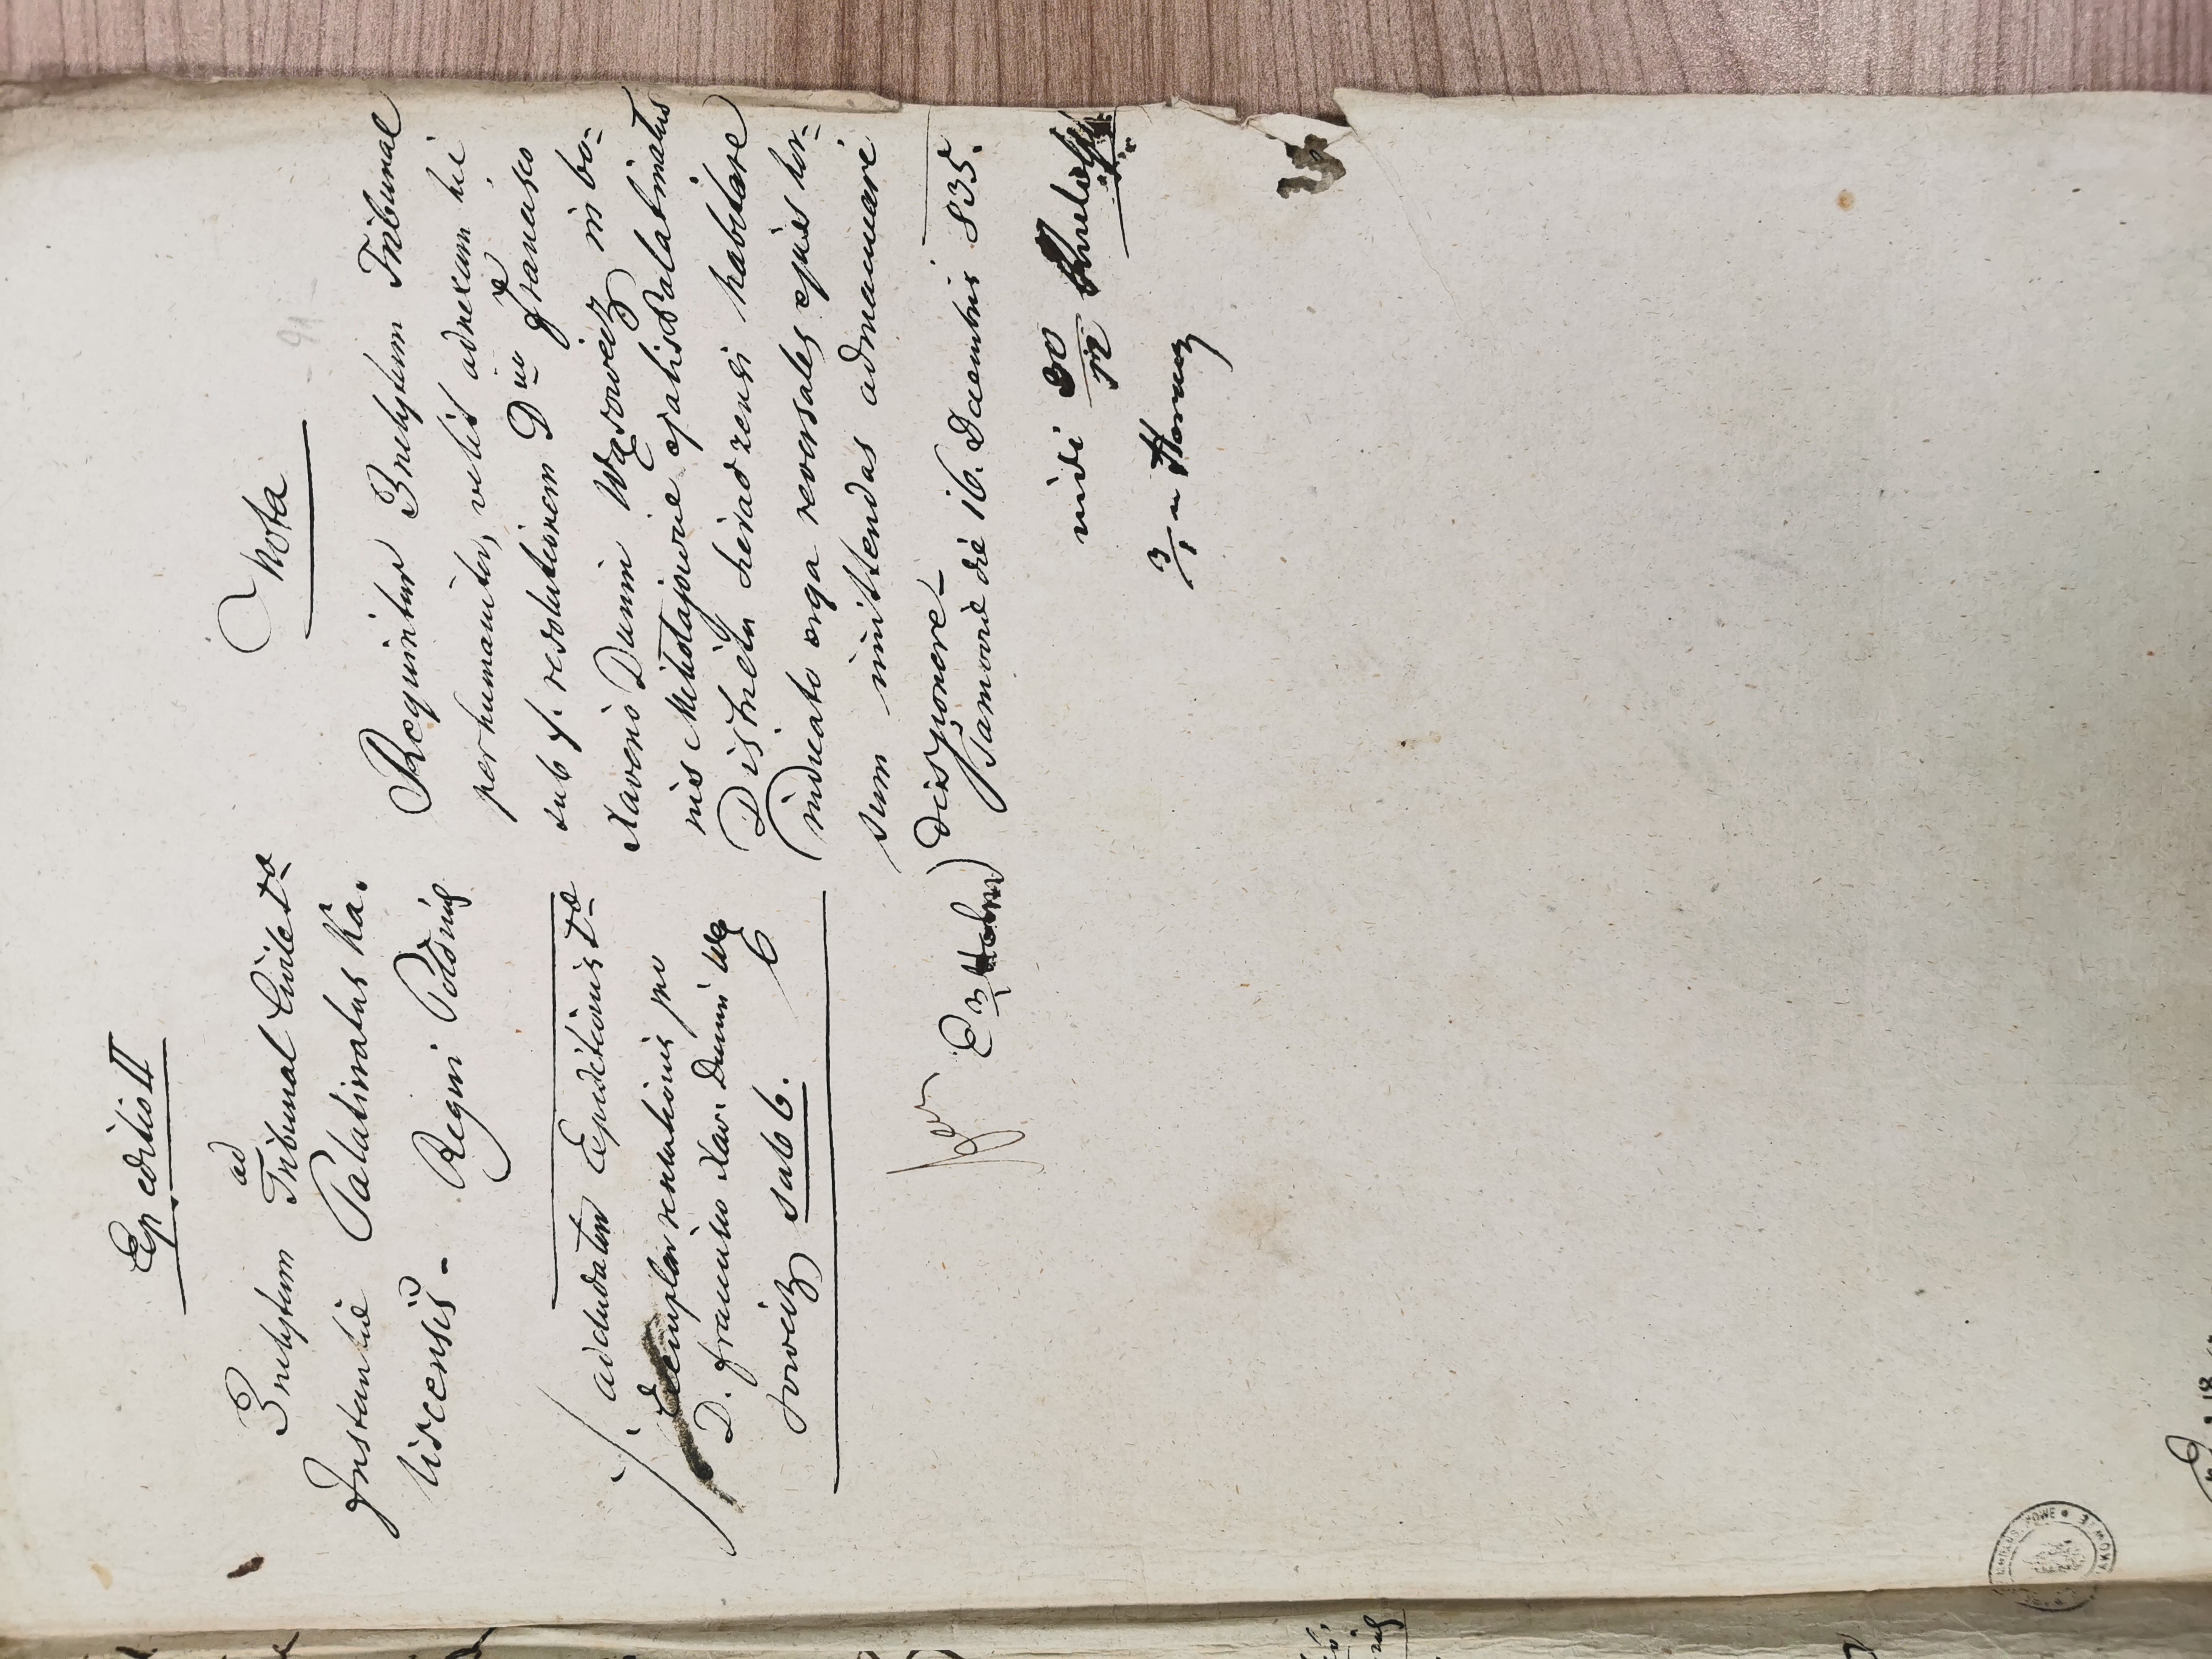 Expeditio II
ad
Inclytum Tribunal Civile 1æ
Instantiæ Palatinatus Ka.
liscensis - Regni Poloniæ
./. adcludatur Expeditionis 1æ
Exemplar resolutionis pro
D. Francisco Xav. Dunin Wą
sowicz sub 6.
Nota
Requiritur Inclytum Tribunal
perhumaniter, velit adnexam hic
sub ./. resolutionem Dno Francisco
Xaverio Dunin Wąsowicz in bo-
nis Mikołajowie ejalis Palatinatus
Districtu Sieradzensi habitare
indicato erga reversales ejus hor-
sum mittendas admanuari
disponere
Tarnoviæ die 16. Decembris 835.
vidi 30/12
3/1